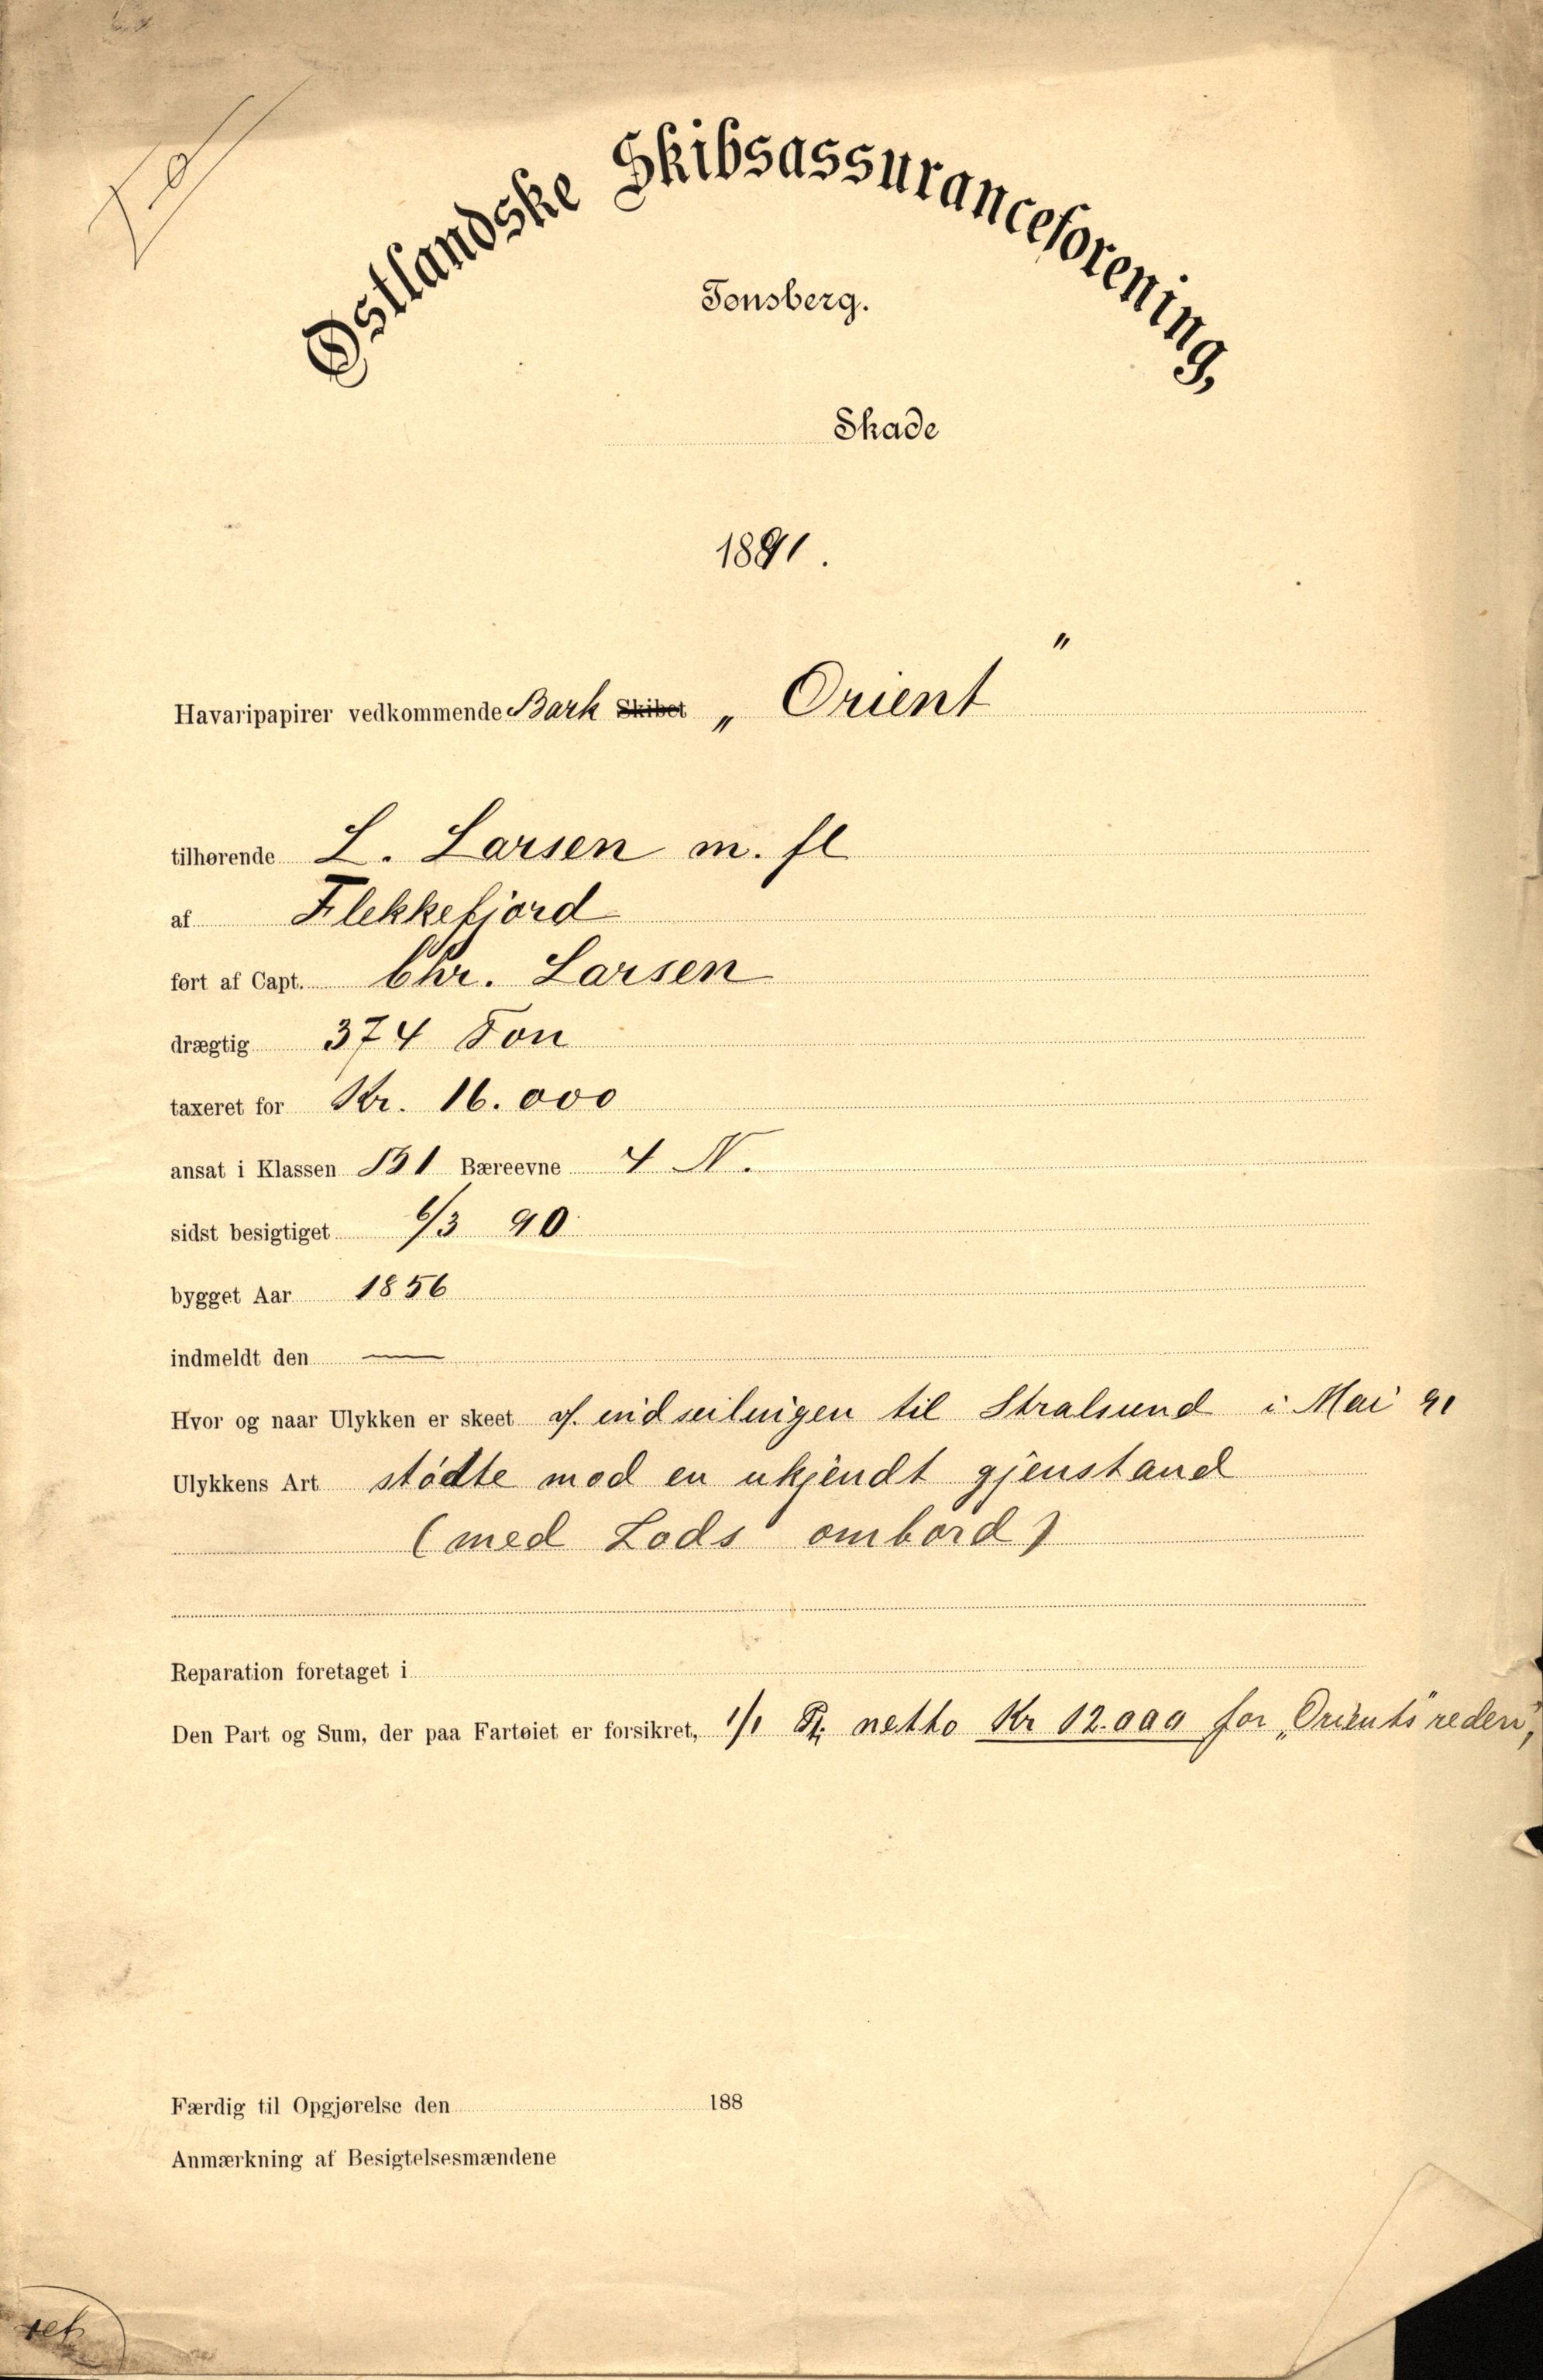 Østlandske Skibsassuranceforening,
Tønsberg.
Skade
1891.
Havaripapirer vedkommende Bark Skibet „Orient"
tilhørende L. Larsen m. fl
af Flekkefjord
ført af Capt. Chr. Larsen
drægtig 374 Ton
taxeret for Kr. 16.000
ansat i Klassen B1 Bæreevne 4 N.
sidst besigtiget 6/3 90
bygget Aar 1856
indmeldt den —
Hvor og naar Ulykken er skeet indseilingen til Stralsund i Mai 91
Ulykkens Art stødte mod en ukjendt gjenstand
(med Lods ombord)
Reparation foretaget i
Den Part og Sum, der paa Fartøiet er forsikret, 1/1 Pt. netto Kr 12.000 for „Orients" rederi,
Færdig til Opgjørelse den 188
Anmærkning af Besigtelsesmændene